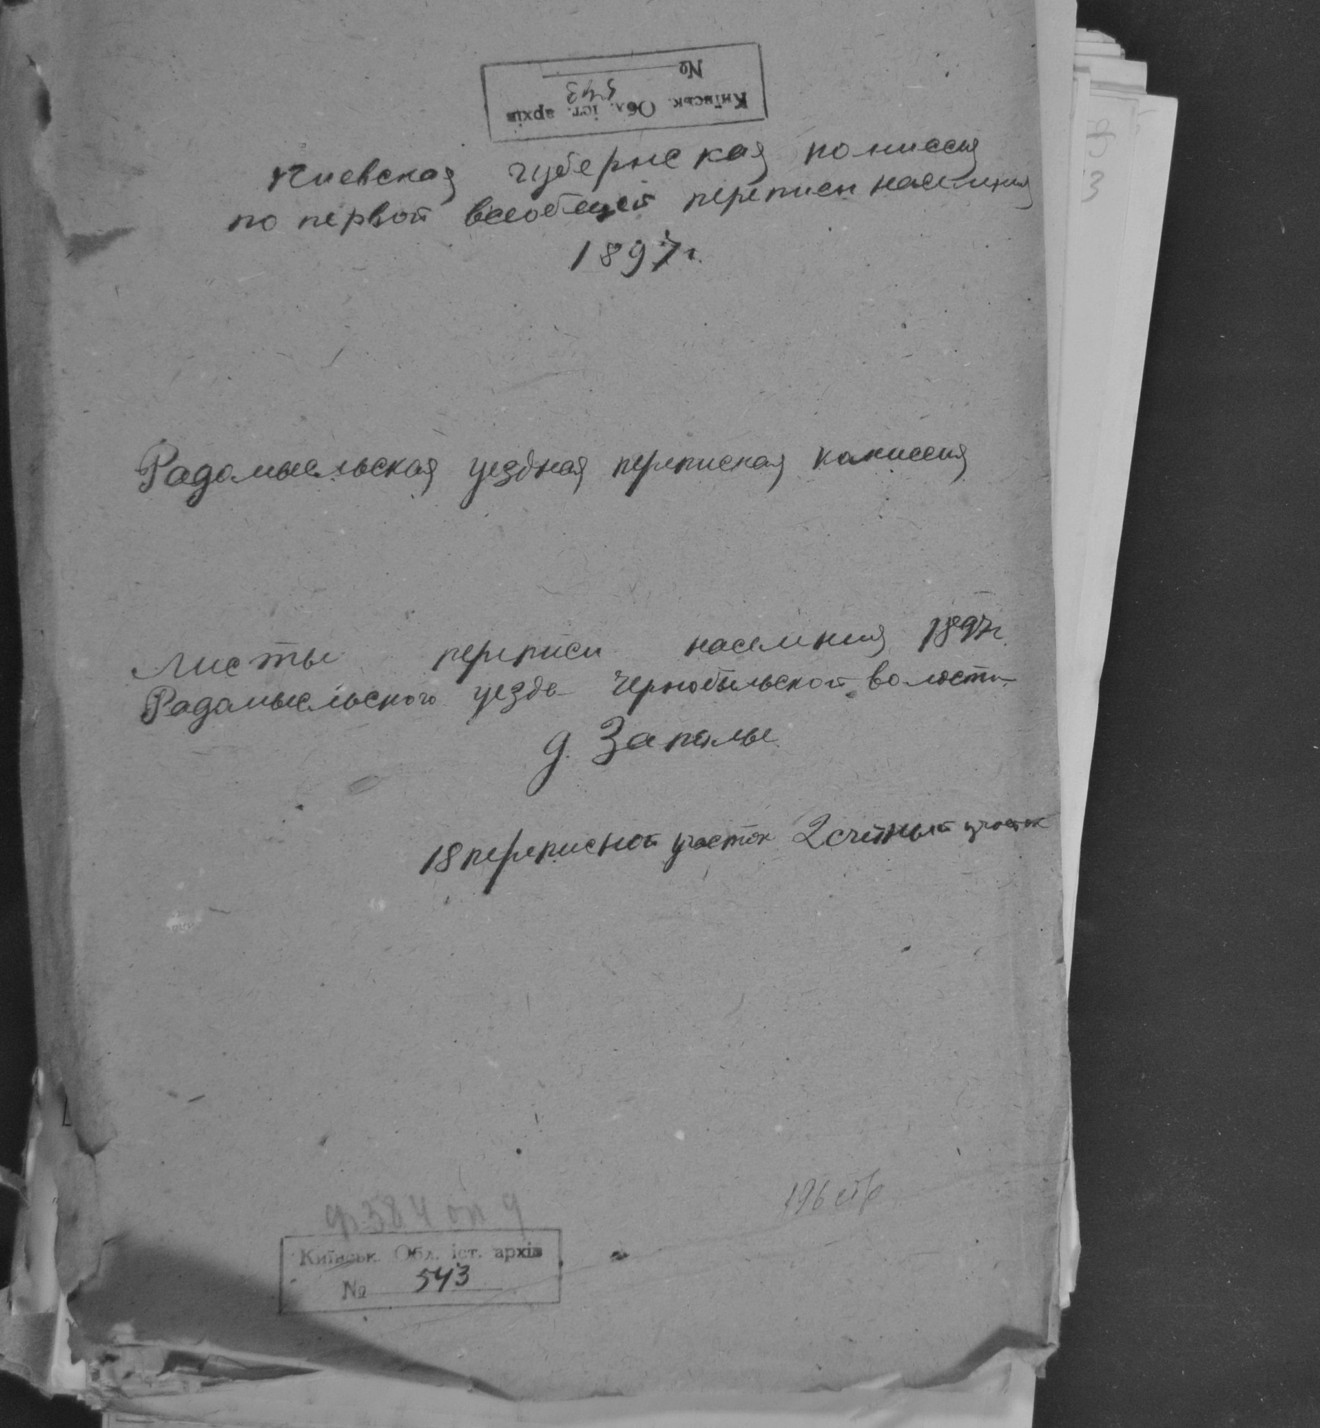 Київськ. Обл. іст. архів
543
№
Киевская губернская комиссия
по первой всеобщей переписи населения
1897г.
Радомысльская уездная переписная комиссия
Листы переписи населения 1897г.
Радомысльского уезда Чернобыльской волости
д. Заполье
18 переписной участок 2 счетный участок
196 стр
ф 384 оп 9
Київськ. Обл. іст. архів
№ 543